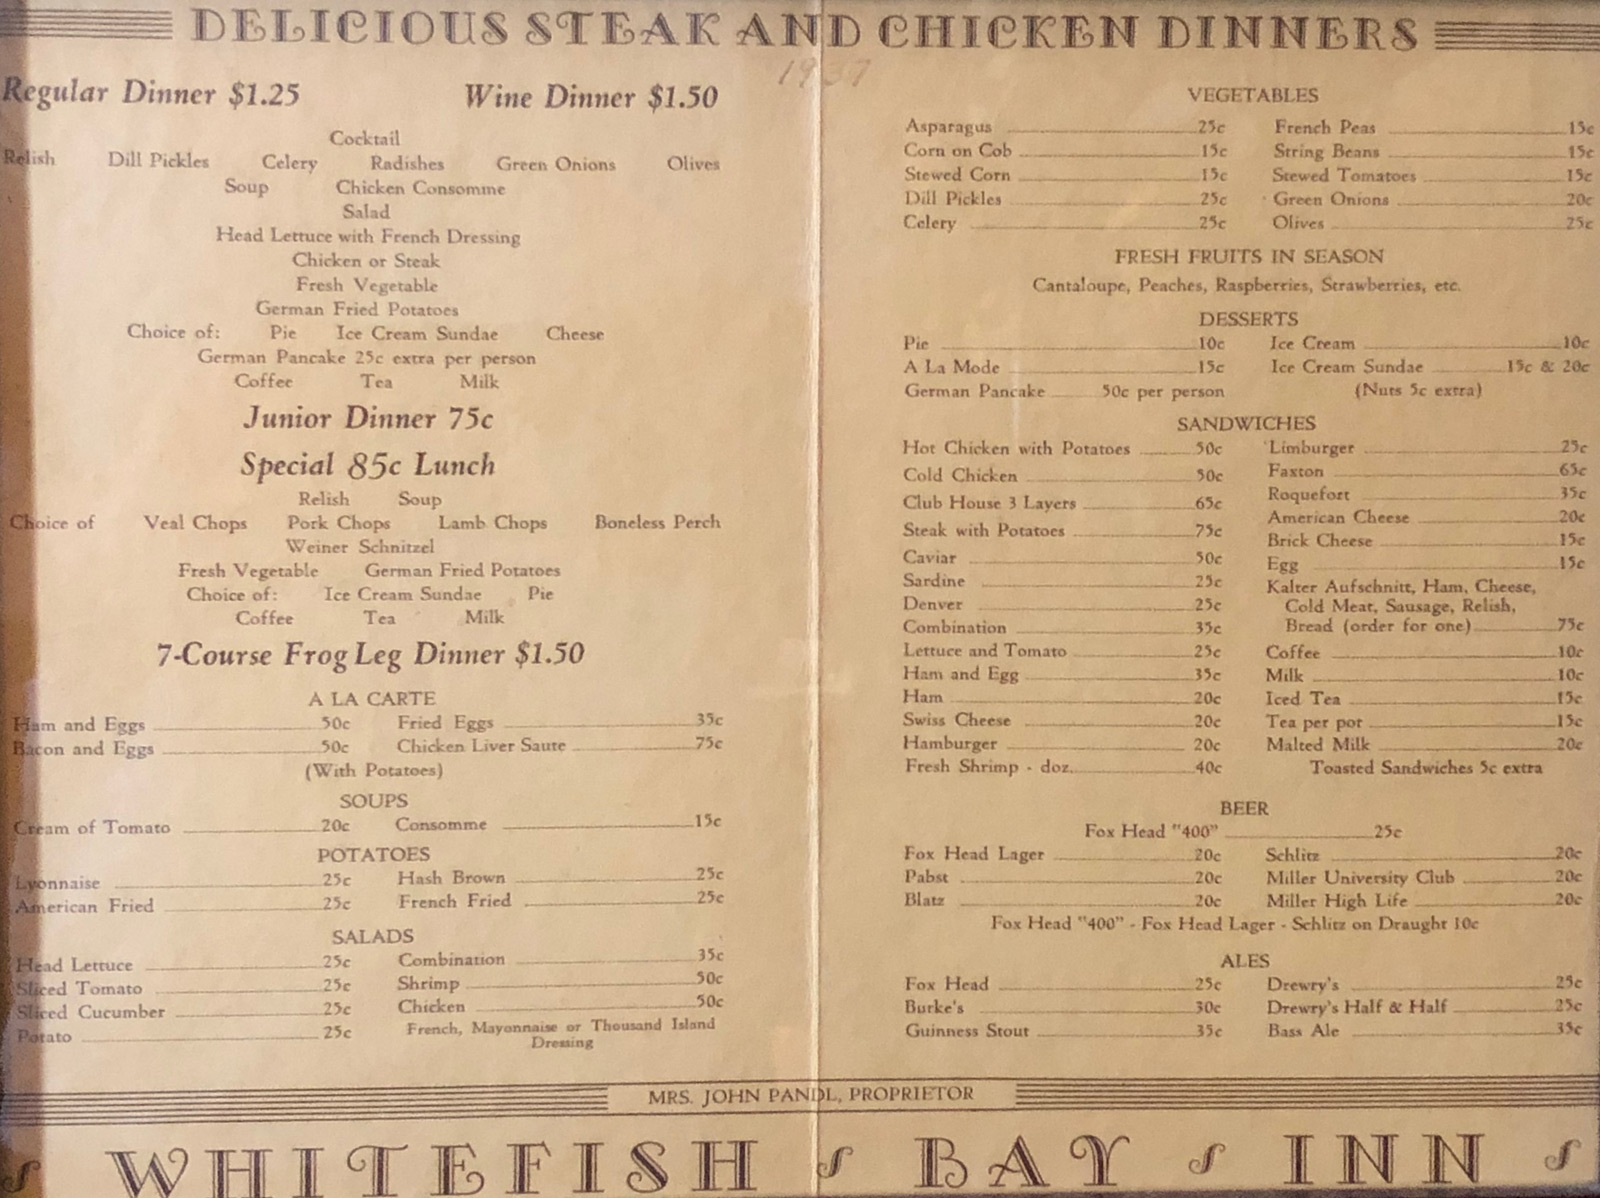 DELICIOUS STEAK AND CHICKEN DINNERS
1937
Regular Dinner $1.25 Wine Dinner $1.50
Cocktail
Relish Dill Pickles Celery Radishes Green Onions Olives
Soup Chicken Consomme
Salad
Head Lettuce with French Dressing
Chicken or Steak
Fresh Vegetable
German Fried Potatoes
Choice of: Pie Ice Cream Sundae Cheese
German Pancake 25c extra per person
Coffee Tea Milk
Junior Dinner 75c
Special 85c Lunch
Relish Soup
Choice of Veal Chops Pork Chops Lamb Chops Boneless Perch
Weiner Schnitzel
Fresh Vegetable German Fried Potatoes
Choice of: Ice Cream Sundae Pie
Coffee Tea Milk
7-Course Frog Leg Dinner $1.50
A LA CARTE
Ham and Eggs 50c Fried Eggs 35c
Bacon and Eggs 50c Chicken Liver Saute 75c
(With Potatoes)
SOUPS
Cream of Tomato 20c Consomme 15c
POTATOES
Lyonnaise 25c Hash Brown 25c
American Fried 25c French Fried 25c
SALADS
Head Lettuce 25c Combination 35c
Sliced Tomato 25c Shrimp 50c
Sliced Cucumber 25c Chicken 50c
Potato 25c French, Mayonnaise or Thousand Island
Dressing
VEGETABLES
Asparagus 25c French Peas 15c
Corn on Cob 15c String Beans 15c
Stewed Corn 15c Stewed Tomatoes 15c
Dill Pickles 25c Green Onions 20c
Celery 25c Olives 25c
FRESH FRUITS IN SEASON
Cantaloupe, Peaches, Raspberries, Strawberries, etc.
DESSERTS
Pie 10c Ice Cream 10c
A La Mode 15c Ice Cream Sundae 15c & 20c
German Pancake 50c per person (Nuts 5c extra)
SANDWICHES
Hot Chicken with Potatoes 50c
Cold Chicken 50c
Club House 3 Layers 65c
Steak with Potatoes 75c
Caviar 50c
Sardine 25c
Denver 25c
Combination 35c
Lettuce and Tomato 25c
Ham and Egg 35c
Ham 20c
Swiss Cheese 20c
Hamburger 20c
Fresh Shrimp - doz. 40c
Limburger 25c
Faxton 65c
Roquefort 35c
American Cheese 20c
Brick Cheese 15c
Egg 15c
Kalter Aufschnitt, Ham, Cheese,
Cold Meat, Sausage, Relish,
Bread (order for one) 75c
Coffee 10c
Milk 10c
Iced Tea 15c
Tea per pot 15c
Malted Milk 20c
Toasted Sandwiches 5c extra
BEER
Fox Head "400" 25c
Fox Head Lager 20c Schlitz 20c
Pabst 20c Miller University Club 20c
Blatz 20c Miller High Life 20c
Fox Head "400" - Fox Head Lager - Schlitz on Draught 10c
ALES
Fox Head 25c Drewry's 25c
Burke's 30c Drewry's Half & Half 25c
Guinness Stout 35c Bass Ale 35c
MRS. JOHN PANDL, PROPRIETOR
WHITEFISH BAY INN